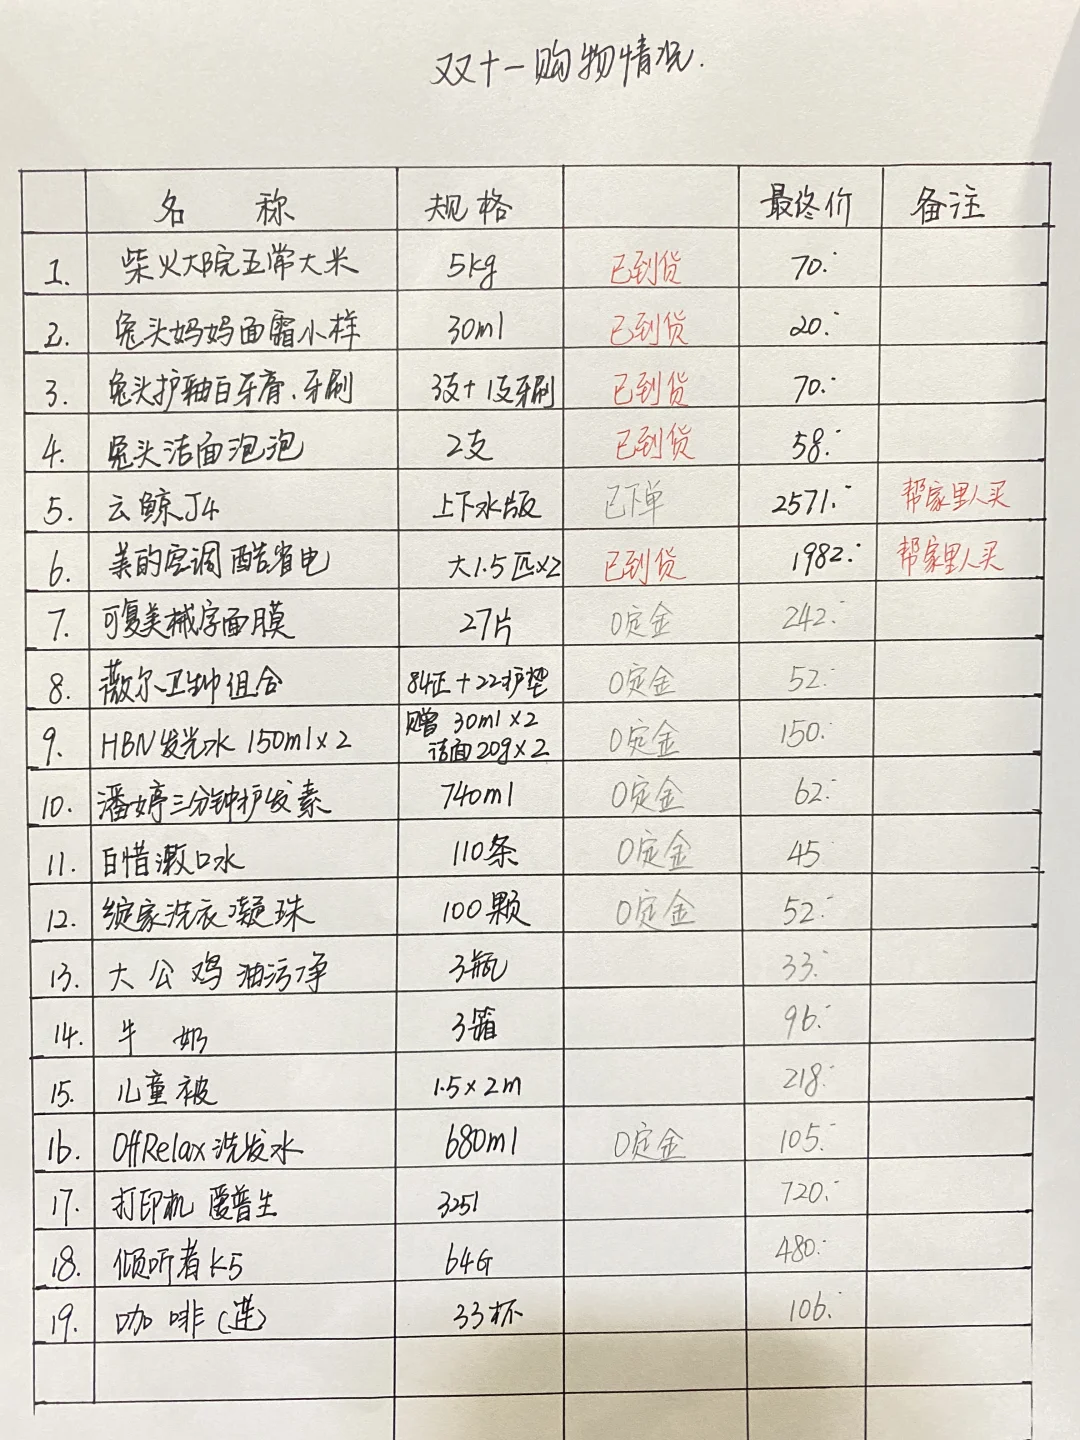 双十一购物情况.
名 称 规格 最终价 备注
1. 柴火大院五常大米 5kg 已到货 70.-
2. 兔头妈妈面霜小样 30ml 已到货 20.-
3. 兔头护釉白牙膏.牙刷 3支+1支牙刷 已到货 70.-
4. 兔头洁面泡泡 2支 已到货 58.-
5. 云鲸J4 上下水版 已下单 2571.- 帮家里人买
6. 美的空调 酷省电 大1.5匹×2 已到货 1982.- 帮家里人买
7. 可复美械字面膜 27片 0定金 242.-
8. 薇尔卫生巾组合 84正+22护垫 0定金 52.-
9. HBN发光水 150ml×2 赠 30ml×2 0定金 150.-
洁面20g×2
10. 潘婷三分钟护发素 740ml 0定金 62.-
11. 白惜漱口水 110条 0定金 45
12. 绽家洗衣凝珠 100颗 0定金 52.-
13. 大公鸡油污净 3瓶 33.-
14. 牛 奶 3箱 96.-
15. 儿童被 1.5×2m 218.-
16. OffRelax洗发水 680ml 0定金 105.-
17. 打印机 爱普生 3251 720.-
18. 倾听者K5 64G 480.-
19. 咖啡(连) 33杯 106.-